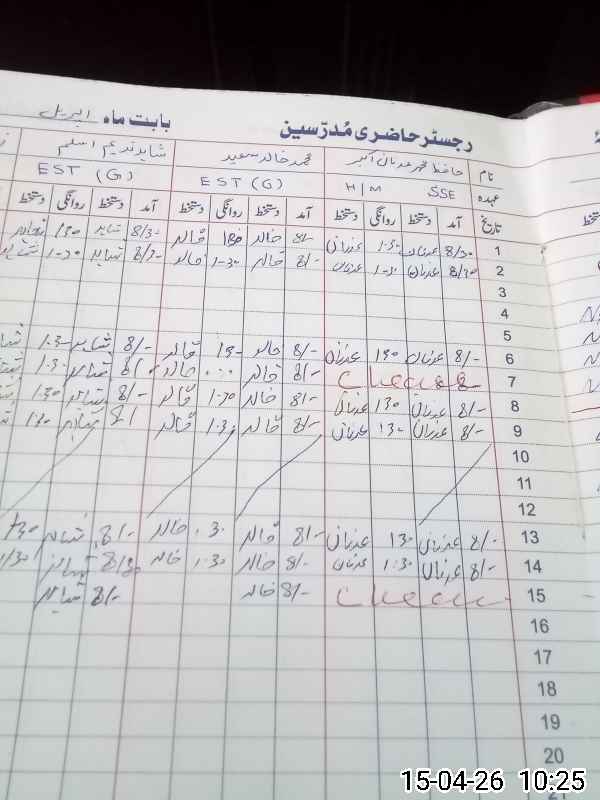 رجسٹر حاضری مُدرّسین بابت ماہ اپریل
نام حافظ محمد عدنان اکبر محمد خالد سعید شاہد ندیم اسلم
عہدہ SSE H/M EST (G) EST (G)
تاریخ آمد دستخط روانگی دستخط آمد دستخط روانگی دستخط آمد دستخط روانگی دستخط
1 8/30 عدنان 1-30 عدنان 8/- خالد 130 خالد 8/30 شاہد 130
2 8/30 عدنان 1-30 عدنان 8/- خالد 1-30 خالد 8/30 شاہد 1-30 شاہد
3
4
5
6 8/- عدنان 130 عدنان 8/- خالد 130 خالد 8/- شاہد 1.30
7 8/- خالد خالد 8/- شاہد 1.30
8 8/- عدنان 130 عدنان 8/- خالد 1-30 خالد 8/- شاہد 130
9 8/- عدنان 130 عدنان 8/- خالد 1.30 خالد 8/- شاہد 130
10
11
12
13 8/- عدنان 130 عدنان 8/- خالد .30 خالد 8/- شاہد 130
14 8/- عدنان 1:30 عدنان 8/- خالد 1:30 خالد 8/30 شاہد 1/30
15 8/- خالد 8/- شاہد
16
17
18
19
20
21
15-04-26 10:25